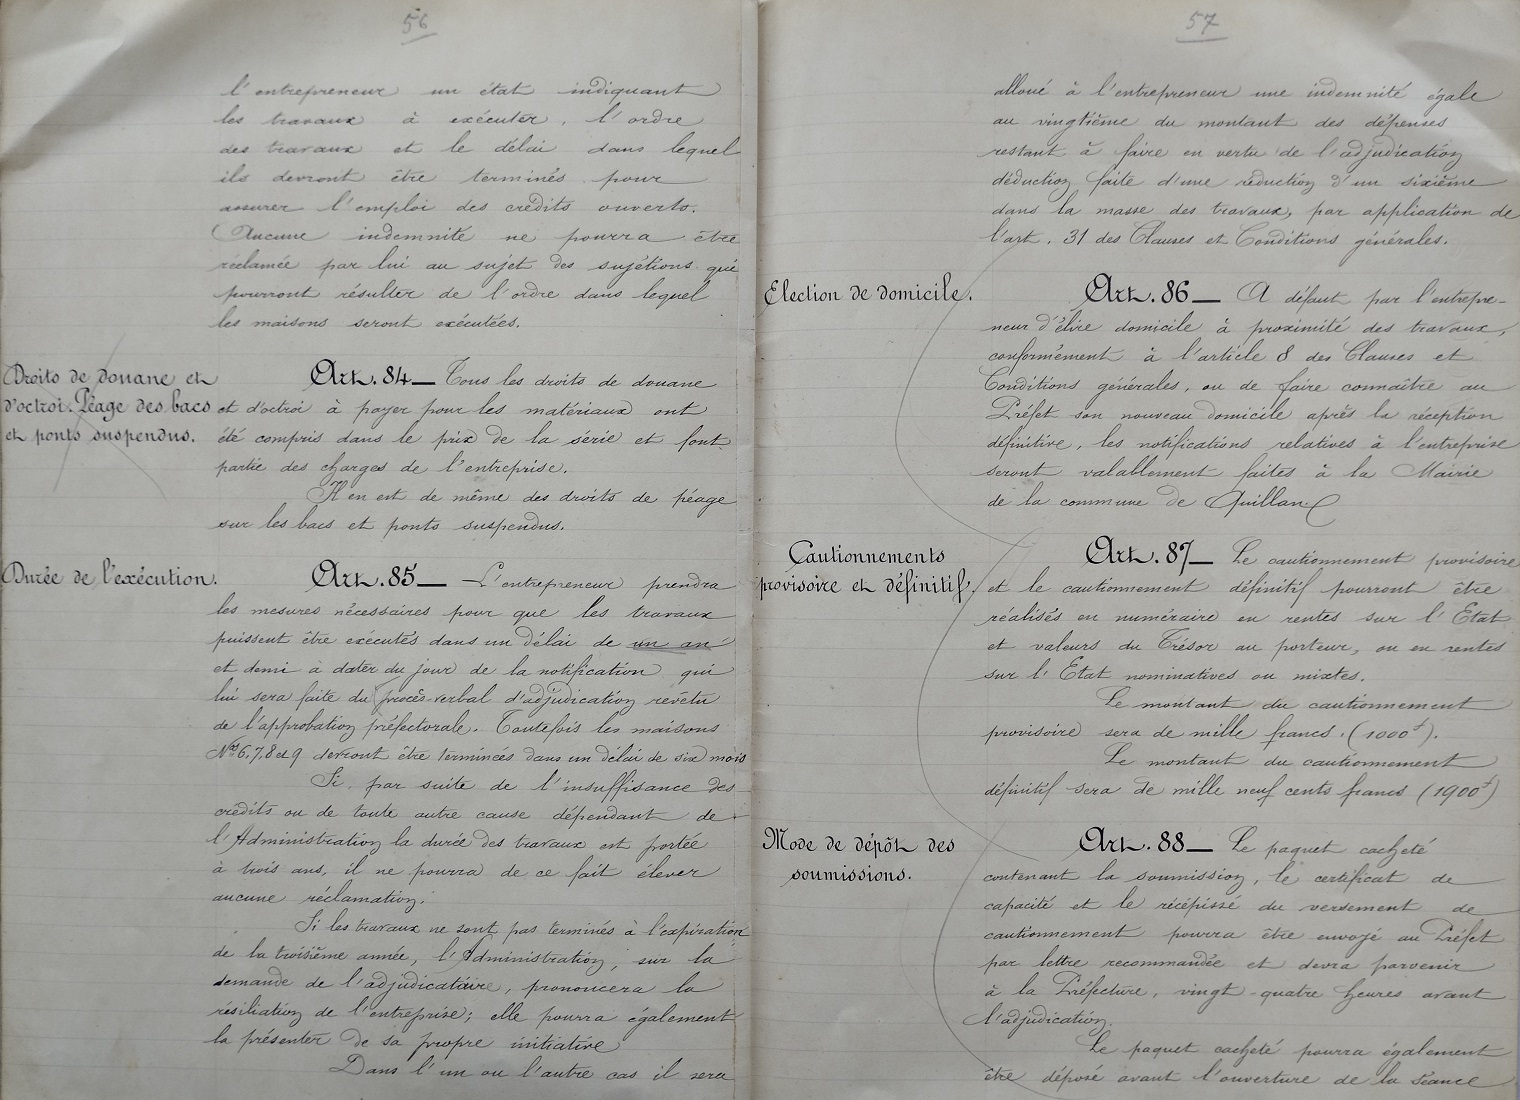 56
l'entrepreneur un état indiquant
les travaux à exécuter, l'ordre
des travaux et le délai dans lequel
ils devront être terminés pour
assurer l'emploi des crédits ouverts.
Aucune indemnité ne pourra être
réclamée par lui au sujet des sujétions qui
pourront résulter de l'ordre dans lequel
les maisons seront exécutées.
Droits de douane et
d'octroi. Péage des bacs
et ponts suspendus.
Art. 84 — Tous les droits de douane
et d'octroi à payer pour les matériaux ont
été compris dans le prix de la série et font
partie des charges de l'entreprise.
Il en est de même des droits de péage
sur les bacs et ponts suspendus.
Durée de l'exécution.
Art. 85 — L'entrepreneur prendra
les mesures nécessaires pour que les travaux
puissent être exécutés dans un délai de un an
et demi à dater du jour de la notification qui
lui sera faite du procès-verbal d'adjudication revêtu
de l'approbation préfectorale. Toutefois les maisons
Nos 6, 7, 8 et 9 devront être terminées dans un délai de six mois
Si par suite de l'insuffisance des
crédits ou de toute autre cause dépendant de
l'Administration la durée des travaux est portée
à trois ans, il ne pourra de ce fait élever
aucune réclamation.
Si les travaux ne sont pas terminés à l'expiration
de la troisième année, l'Administration, sur la
demande de l'adjudicataire, prononcera la
résiliation de l'entreprise; elle pourra également
la présenter de sa propre initiative
Dans l'un ou l'autre cas il sera
57
alloué à l'entrepreneur une indemnité égale
au vingtième du montant des dépenses
restant à faire en vertu de l'adjudication
déduction faite d'une réduction d'un sixième
dans la masse des travaux, par application de
l'art. 31 des Clauses et Conditions générales.
Election de domicile.
Art. 86 — A défaut par l'entrepre-
neur d'élire domicile à proximité des travaux,
conformément à l'article 8 des Clauses et
Conditions générales, ou de faire connaître au
Préfet son nouveau domicile après la réception
définitive, les notifications relatives à l'entreprise
seront valablement faites à la Mairie
de la commune de Quillan
Cautionnements
provisoire et définitif.
Art. 87 — Le cautionnement provisoire
et le cautionnement définitif pourront être
réalisés en numéraire en rentes sur l'Etat
et valeurs du Trésor au porteur, ou en rentes
sur l'Etat nominatives ou mixtes.
Le montant du cautionnement
provisoire sera de mille francs. (1000f).
Le montant du cautionnement
définitif sera de mille neuf cents francs (1900f)
Mode de dépôt des
soumissions.
Art. 88 — Le paquet cacheté
contenant la soumission, le certificat de
capacité et le récépissé du versement de
cautionnement pourra être envoyé au Préfet
par lettre recommandée et devra parvenir
à la Préfecture, vingt-quatre heures avant
l'adjudication.
Le paquet cacheté pourra également
être déposé avant l'ouverture de la séance